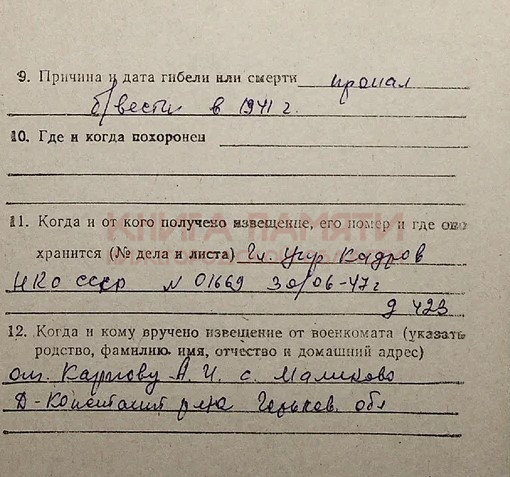 9. Причина и дата гибели или смерти пропал
б/вести в 1941 г.
10. Где и когда похоронен
КНИГА ПАМЯТИ
11. Когда и от кого получено извещение, его номер и где оно
хранится (№ дела и листа) Гл. Упр Кадров
НКО СССР N 01669 30/06-47г
д 423
12. Когда и кому вручено извещение от военкомата (указать
родство, фамилию, имя, отчество и домашний адрес)
от. Карпову А. И. с. Маликово
Д-Константин р-на Горьков. обл